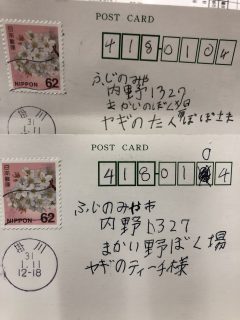 日本郵便
NIPPON
62
POST CARD
418-0104
掛川
31
1.11
ふじのみや
内野1327
まかいのぼく場
ヤギのたんぽぽ
日本郵便
NIPPON
62
POST CARD
418-01 4
0
掛川
31
1.11
12-18
ふじのみや市
内野1327
まかい野ぼく場
ヤギのティーチ様